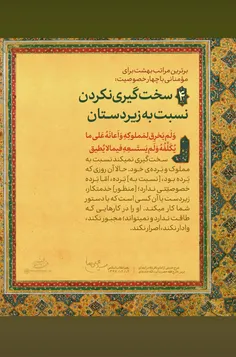 برترین مراتب بهشت برای
مؤمنانی با چهار خصوصیت:
سخت‌گیری نکردن
نسبت به زیردستان
وَلَم يَخرَق لِمَملوكِهِ وَأَعانَهُ عَلىٰ ما
يُكَلِّفُهُ وَلَم يَستَسعِهِ فيما لا يُطيق
سخت‌گیری نمیکند نسبت به
مملوک و بَرده‌ی خود. حالا آن روزی که
بَرده بود، [نسبت به] بَرده؛ امّا بَرده
خصوصیّتی ندارد؛ [منظور] خدمتکار،
زیردست یا آن کسی است که با دستور
شما کار میکند. او را در کارهایی که
طاقت ندارد و نمیتواند؛ مجبور نکند،
وادار نکند، اصرار نکند.